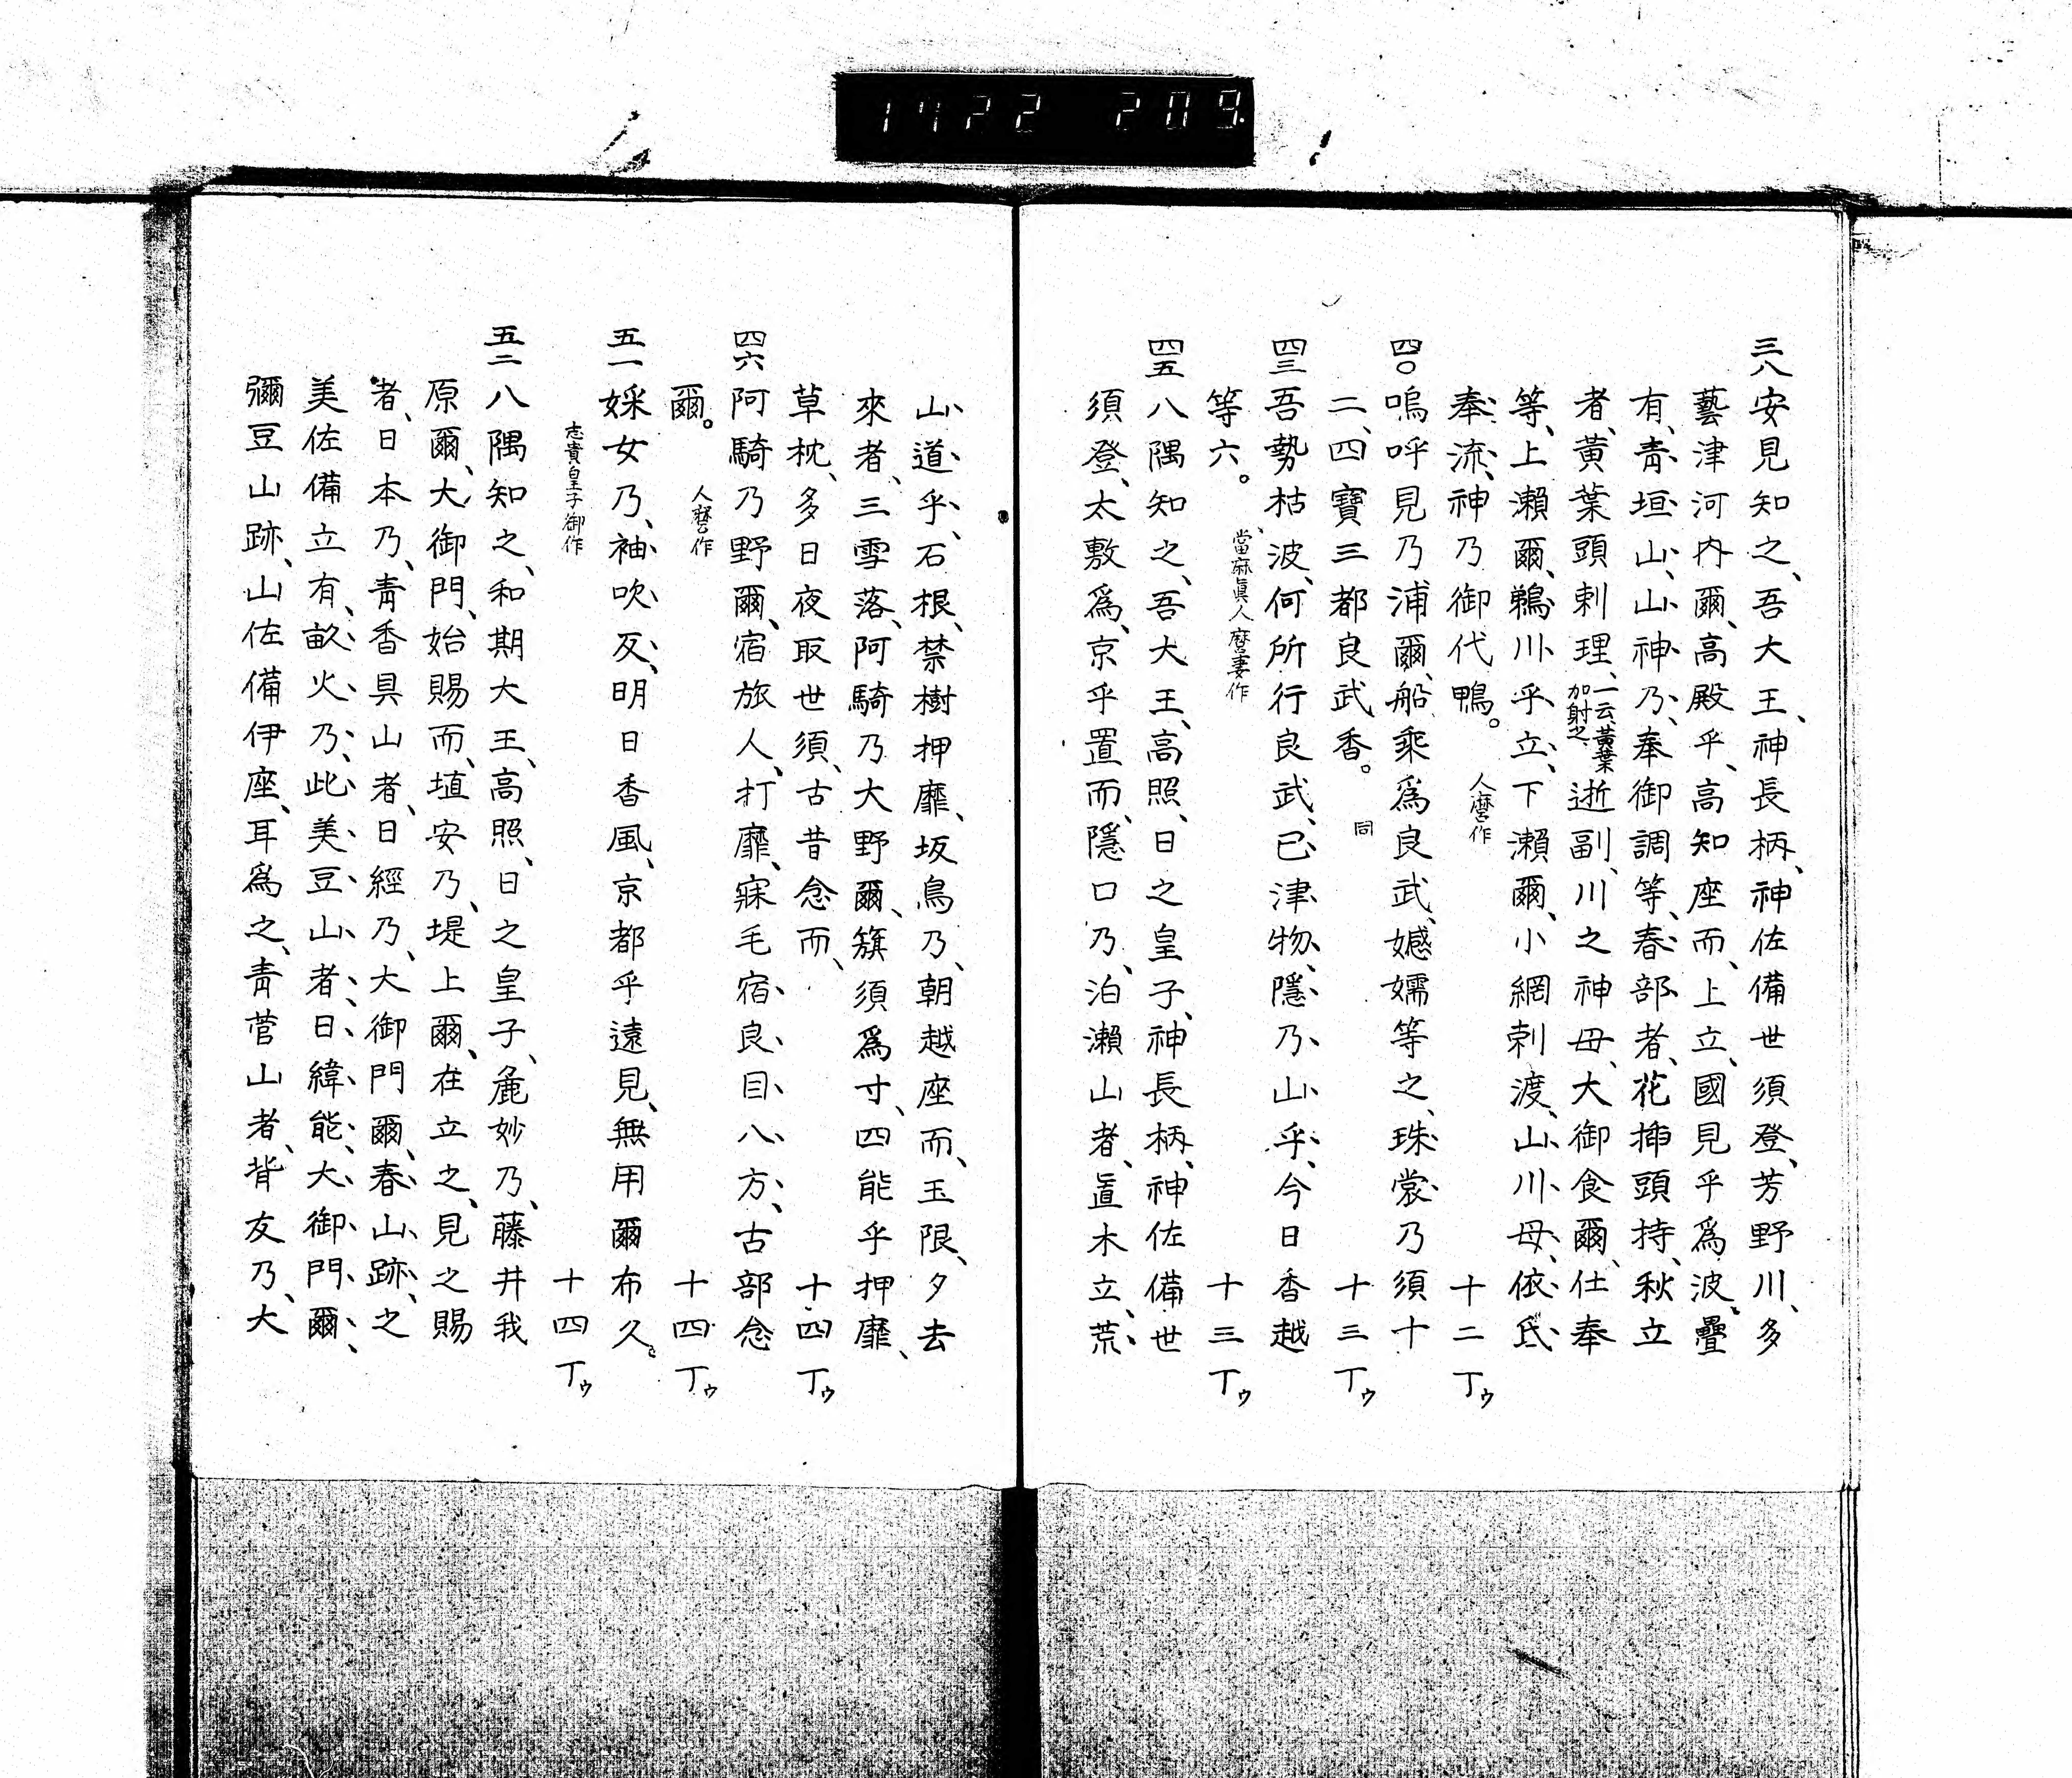 1722 209
三八安見知之、吾大王、神長柄、神佐備世須登、芳野川、多
藝津河內爾、高殿乎、高知座而、上立、國見乎爲波、疊
有、靑垣山、山神乃、奉御調等、春部者、花揷頭持、秋立
者、黃葉頭刺理、一云、黃葉加射之、逝副、川之神母、大御食爾、仕奉
等、上瀨爾、鵜川乎立、下瀨爾、小網刺渡、山川母、依氐、
奉流、神乃御代鴨。 人麿作 十二丁ゥ
四〇嗚呼見乃浦爾、船乘爲良武、嬺嬬等之、珠裳乃須十
二、四寶三都良武香。 同 十三丁ゥ
四三吾勢枯波、何所行良武、已津物、隱乃山乎、今日香越
等六。 當麻眞人麿妻作 十三丁ゥ
四五八隅知之、吾大王、高照、日之皇子、神長柄、神佐備世
須登、太敷爲、京乎置而、隱口乃、泊瀨山者、眞木立、荒
山道乎、石根、禁樹押靡、坂鳥乃、朝越座而、玉限、夕去
來者、三雪落、阿騎乃大野爾、籏須爲寸、四能乎押靡、
草枕、多日夜取世須、古昔念而、 十四丁ゥ
四六阿騎乃野爾、宿旅人、打靡、寐毛宿良目八方、古部念
爾。 人麿作 十四丁ゥ
五一婇女乃、袖吹反、明日香風、京都乎遠見、無用爾布久。
志貴皇子御作 十四丁ゥ
五二八隅知之、和期大王、高照、日之皇子、麁妙乃、藤井我
原爾、大御門、始賜而、埴安乃、堤上爾、在立之、見之賜
者、日本乃、靑香具山者、日經乃、大御門爾、春山跡、之
美佐備立有、畝火乃、此美豆山者、日緯能、大御門爾、
彌豆山跡、山佐備伊座、耳爲之、靑菅山者、背友乃、大